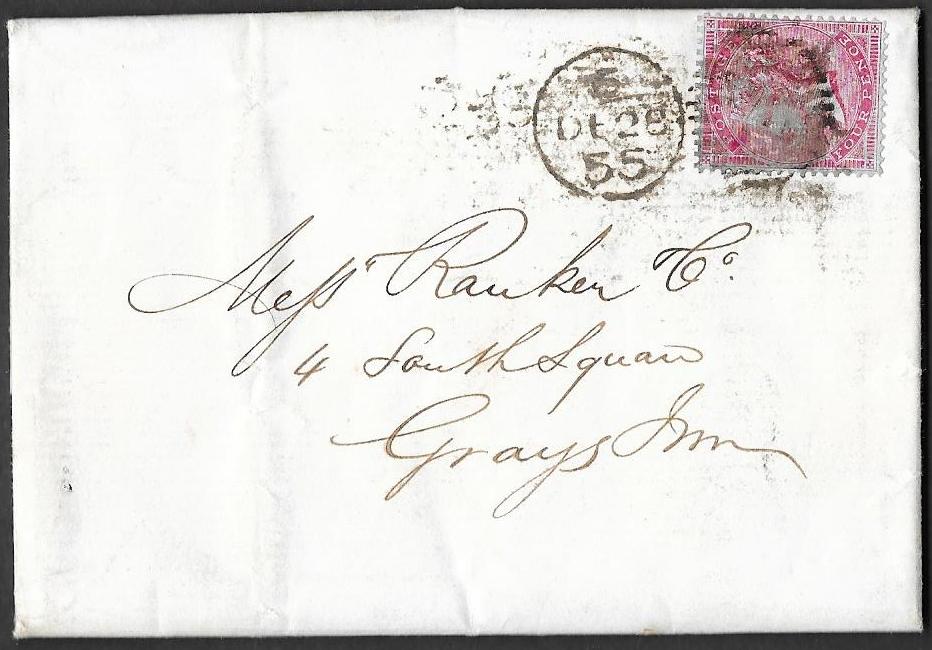 POSTAGE
FOUR PENCE
6
DE 28
55
Messrs Ranken & Co
4 South Square
Grays Inn